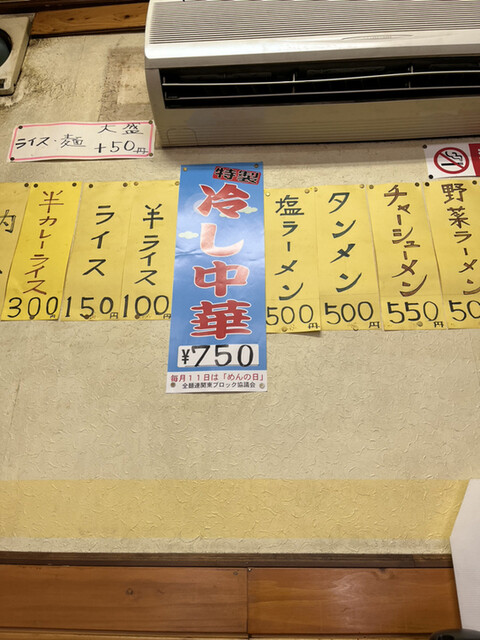 ライス・麺 大盛
+50円
半カレーライス
300円
ライス
150円
半ライス
100円
特製
冷し中華
¥750
毎月11日は「めんの日」
全麺連関東ブロック協議会
塩ラーメン
500円
タンメン
500円
チャーシューメン
550円
野菜ラーメン
50